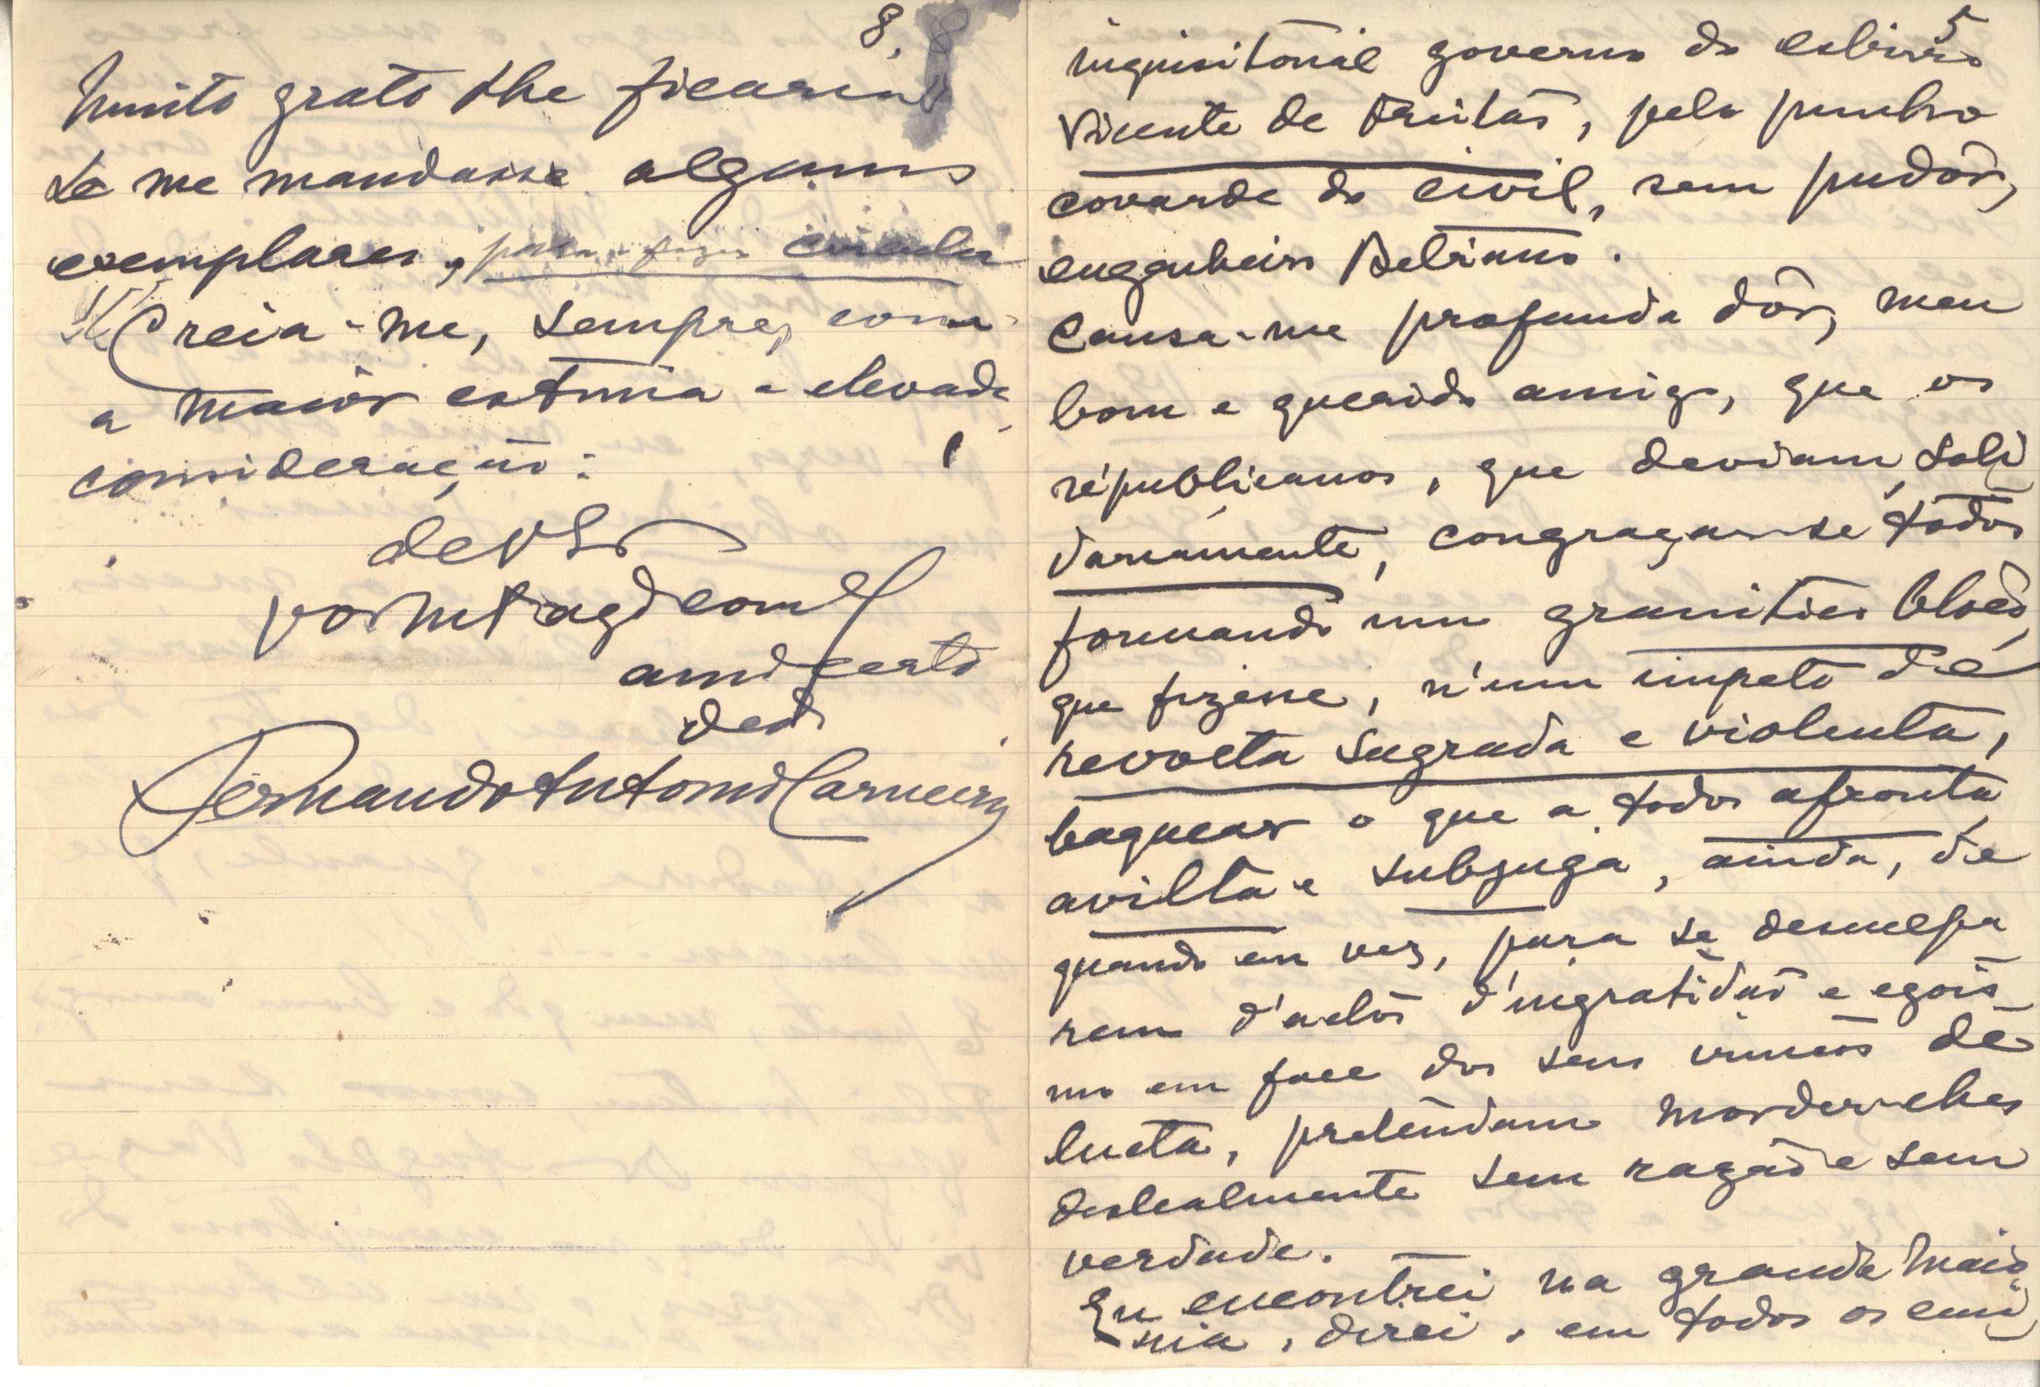 8.
Muito grato lhe ficaria
se me mandasse alguns
exemplares, para fazer circular
Creia-me, sempre, com
a maior estima e elevada
consideração:
de V. Ex.
amº certo
dedº
Fernando Antonio Carneiro
5
inquisitorial governo do esbirro
Vicente de Freitas, pelo punho
covarde do civil, sem pudôr,
engenheiro Bebiano.
Causa-me profunda dôr, meu
bom e querido amigo, que os
républicanos, que deviam, soli
dariamente, congraçar-se todos
formando um granitico bloco,
que fizesse, n'um impeto de
revolta sagrada e violenta,
baquear o que a todos afronta
avilta e subjuga, ainda, de
quando em vez, para se desculpa
rem d'actos d'ingratidão e egois
mo em face dos seus irmãos de
lucta, pretendam morder-lhes
deslealmente sem razão e sem
verdade.
Eu encontrei na grande maio
ria, direi, em todos os emi